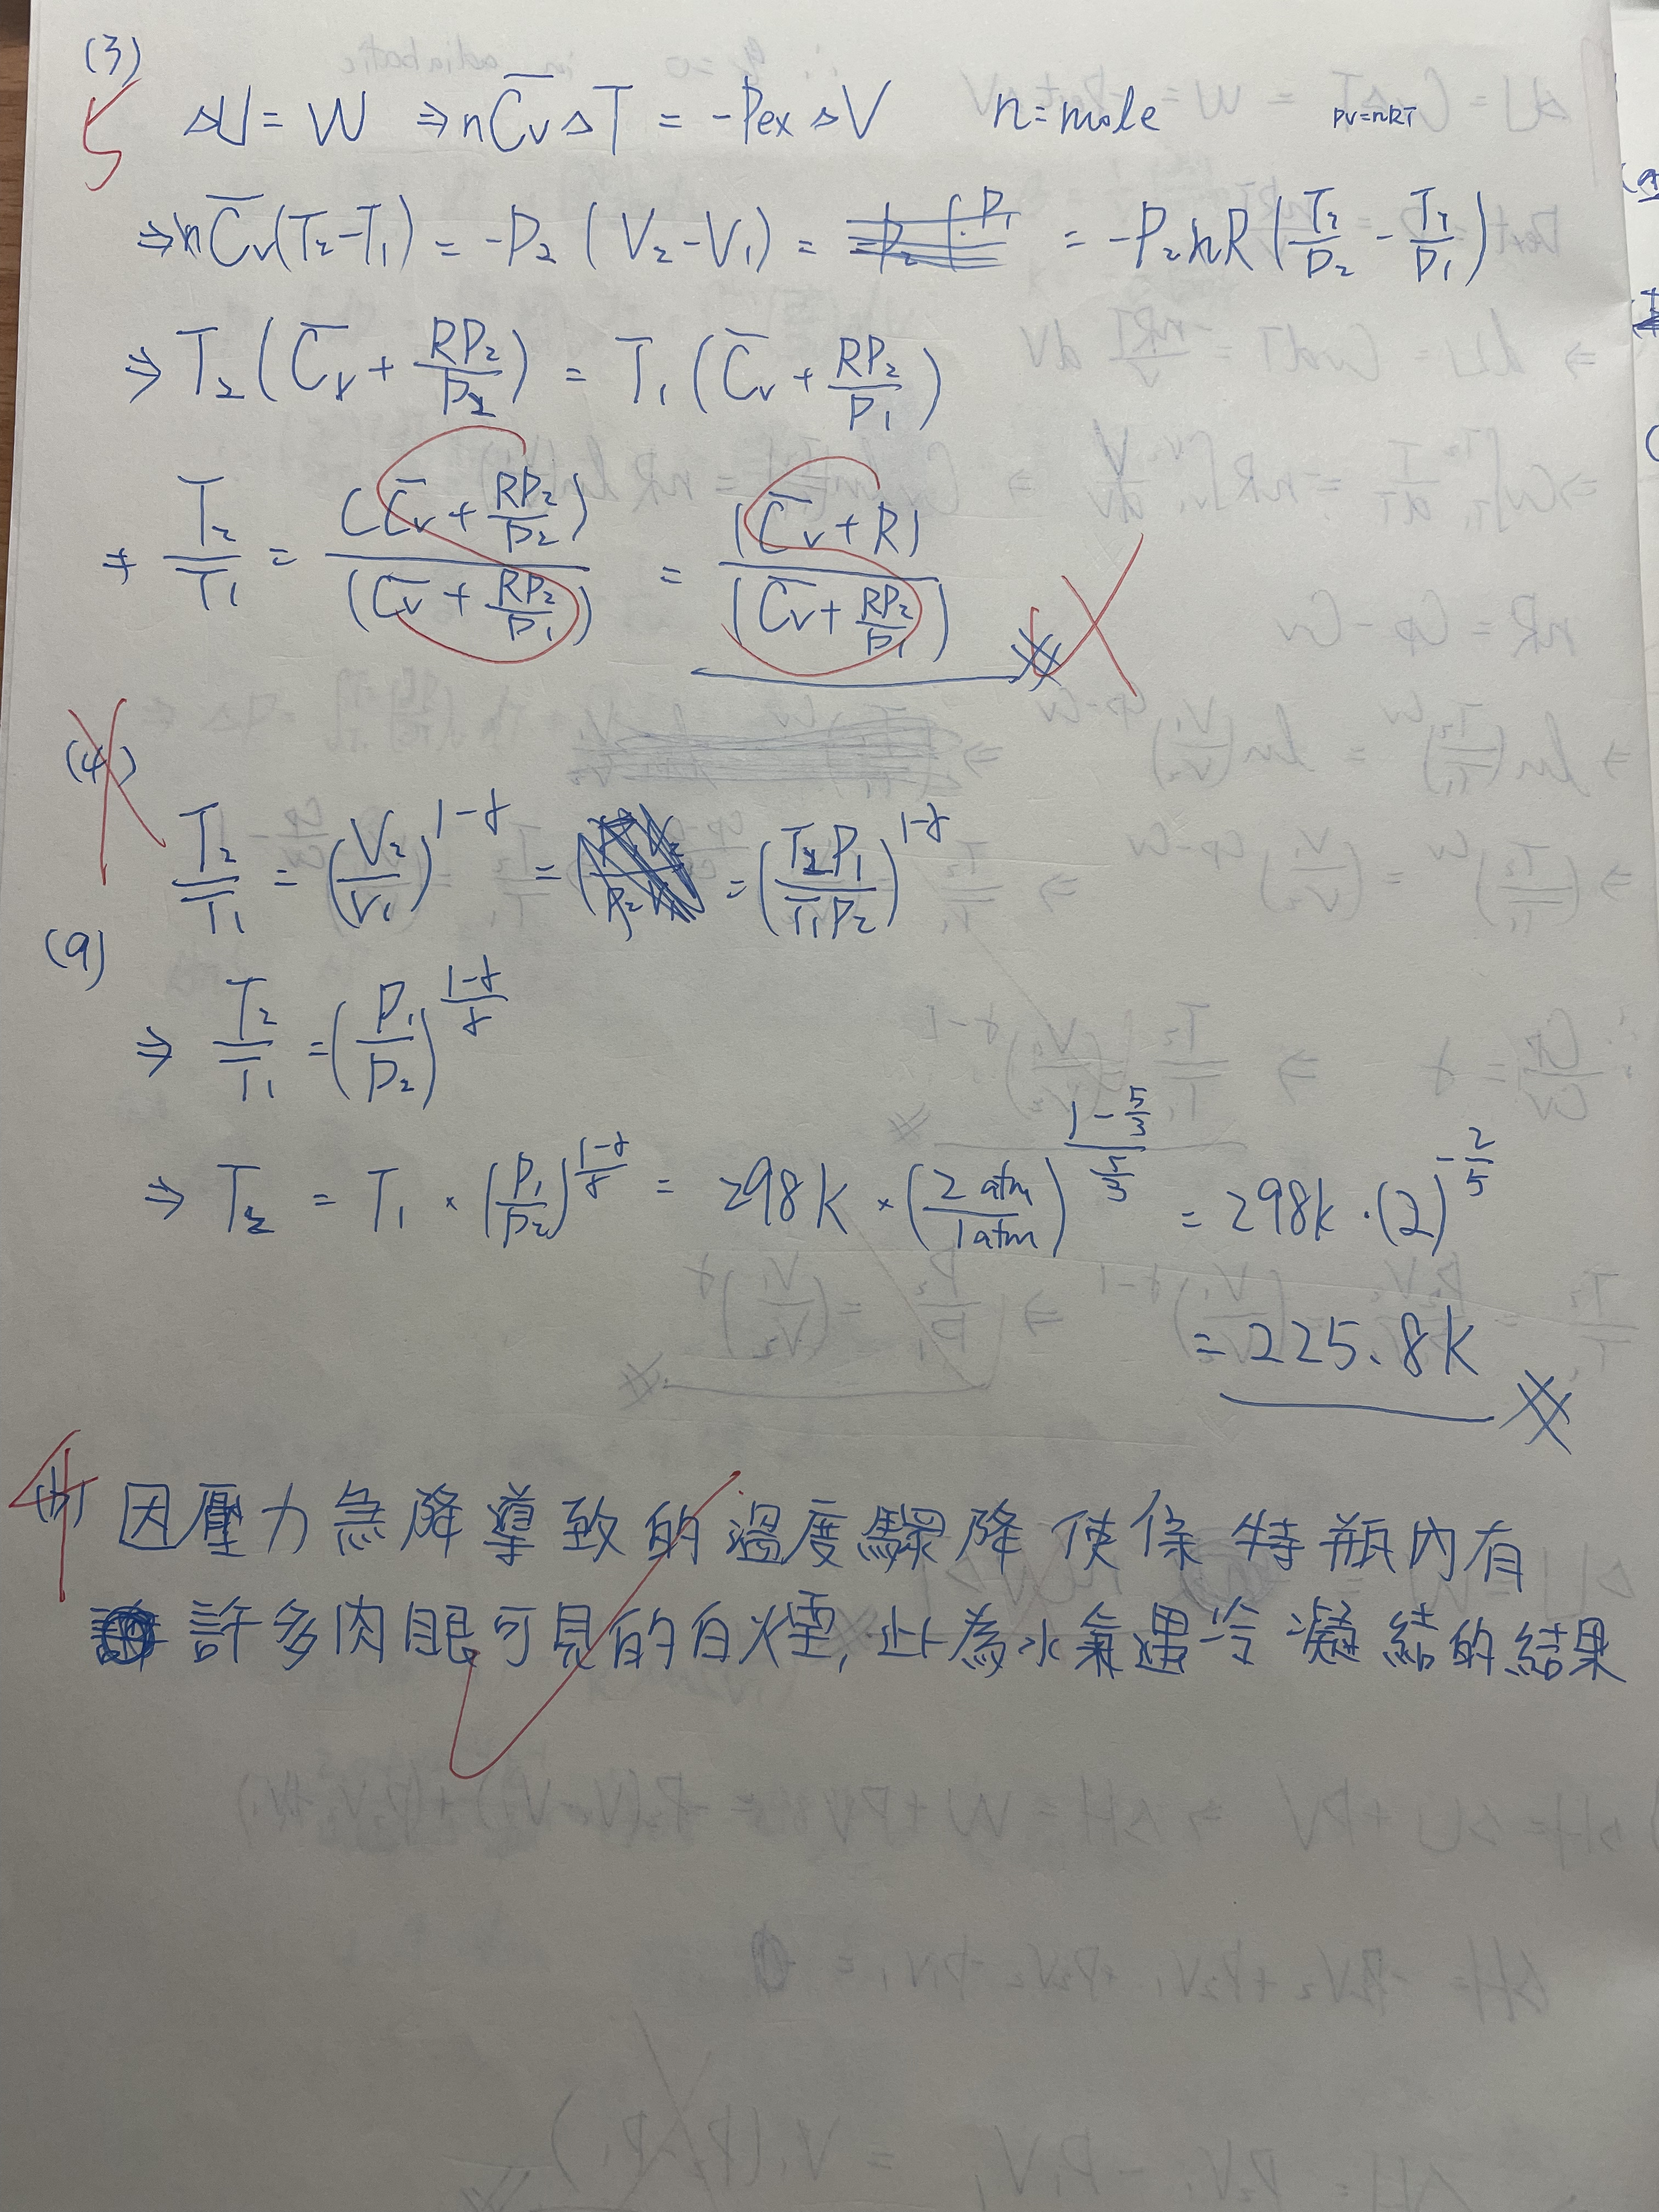 (3)
5
ΔU = W ⇒ nC̄v ΔT = -Pex ΔV n = mole PV=nRT
⇒ nC̄v(T₂-T₁) = -P₂ (V₂-V₁) = = -P₂nR(T₂/P₂ - T₁/P₁)
⇒ T₂(C̄v + RP₂/P₂) = T₁(C̄v + RP₂/P₁)
⇒ T₂/T₁ = (C̄v + RP₂/P₂)/(C̄v + RP₂/P₁) = (C̄v + R)/(C̄v + RP₂/P₁)
(4)
T₂/T₁ = (V₂/V₁)^(1-γ) = = (T₂P₁/T₁P₂)^(1-γ)
(a)
⇒ T₂/T₁ = (P₁/P₂)^((1-γ)/γ)
⇒ T₂ = T₁ × (P₁/P₂)^((1-γ)/γ) = 298K × (2 atm/1 atm)^((1-5/3)/(5/3)) = 298K · (2)^(-2/5)
= 225.8K
4
(b) 因壓力急降導致的溫度驟降使保特瓶內有
許多肉眼可見的白煙, 此為水氣遇冷凝結的結果